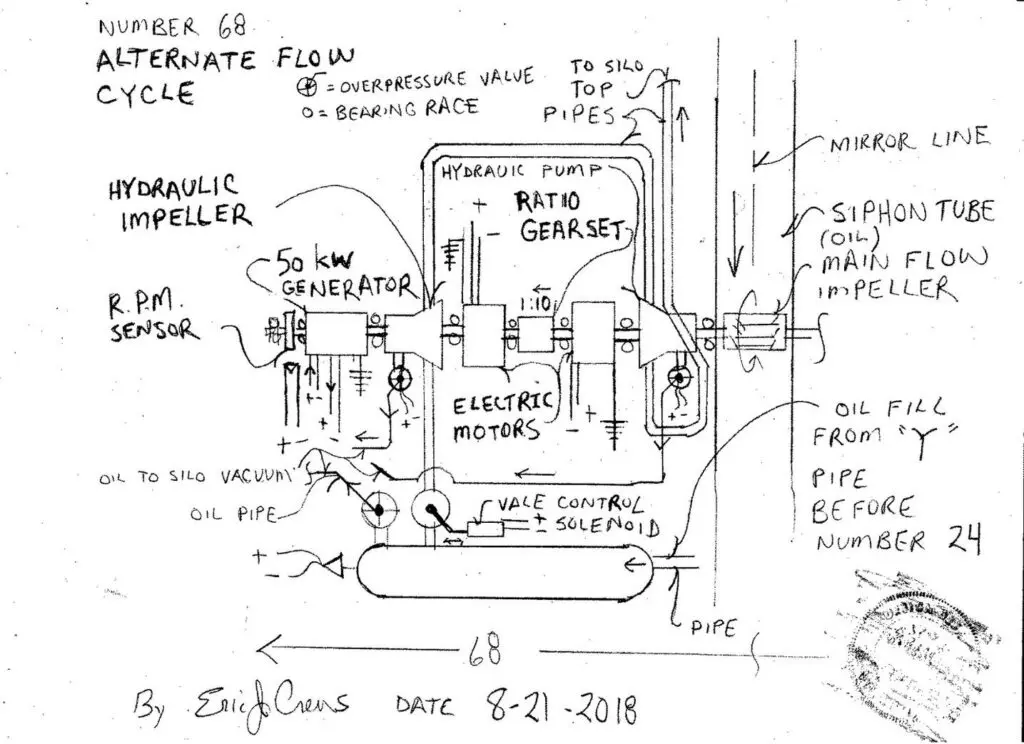 NUMBER 68
ALTERNATE FLOW
CYCLE
= OVERPRESSURE VALVE
O = BEARING RACE
TO SILO
TOP
PIPES
MIRROR LINE
HYDRAULIC
IMPELLER
HYDRAUIC PUMP
+
-
RATIO
GEARSET
SIPHON TUBE
(OIL)
MAIN FLOW
IMPELLER
50 KW
GENERATOR
R.P.M.
SENSOR
1:10
+ -
+ -
+ -
+ -
- +
+ -
ELECTRIC
MOTORS
OIL FILL
FROM "Y"
PIPE
BEFORE
NUMBER 24
OIL TO SILO VACUUM
OIL PIPE
VALE CONTROL
SOLENOID
+
-
+
-
PIPE
68
By Eric J Crews DATE 8-21-2018